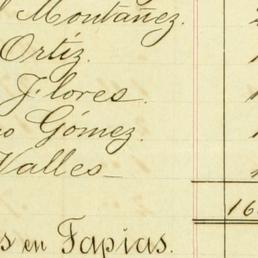 Montañez.
Ortiz.
Flores.
Gómez.
Valles
16
en Tapias.